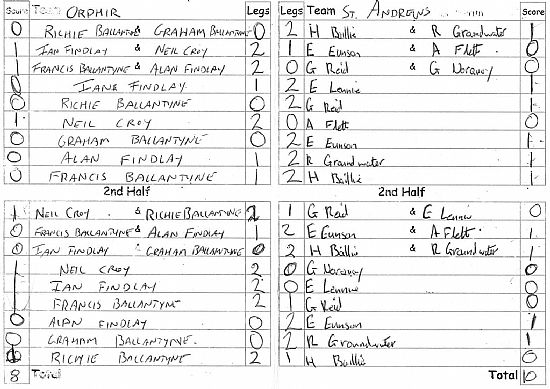 Score Team ORPHIR Legs Legs Team ST. ANDREWS Score
0 RICHIE BALLANTYNE & GRAHAM BALLANTYNE 0 2 H Baillie & R Groundwater 1
1 IAN FINDLAY & NEIL CROY 2 1 E Eunson & A Flett 0
1 FRANCIS BALLANTYNE & ALAN FINDLAY 2 0 G Reid & G Norquay 0
0 IAN FINDLAY 1 2 E Lennie 1
0 RICHIE BALLANTYNE 0 2 G Reid 1
1 NEIL CROY 2 0 A Flett 0
0 GRAHAM BALLANTYNE 0 2 E Eunson 1
0 ALAN FINDLAY 1 2 R Groundwater 1
0 FRANCIS BALLANTYNE 1 2 H Baillie 1
2nd Half 2nd Half
1 NEIL CROY & RICHIE BALLANTYNE 2 1 G Reid & E Lennie 0
0 FRANCIS BALLANTYNE & ALAN FINDLAY 1 2 E Eunson & A Flett 1
0 IAN FINDLAY & GRAHAM BALLANTYNE 0 2 H Baillie & R Groundwater 1
1 NEIL CROY 2 0 G Norquay 0
1 IAN FINDLAY 2 0 E Lennie 0
1 FRANCIS BALLANTYNE 2 1 G Reid 0
0 ALAN FINDLAY 0 2 E Eunson 1
0 GRAHAM BALLANTYNE 0 2 R Groundwater 1
1 RICHIE BALLANTYNE 2 1 H Baillie 0
8 Total Total 10